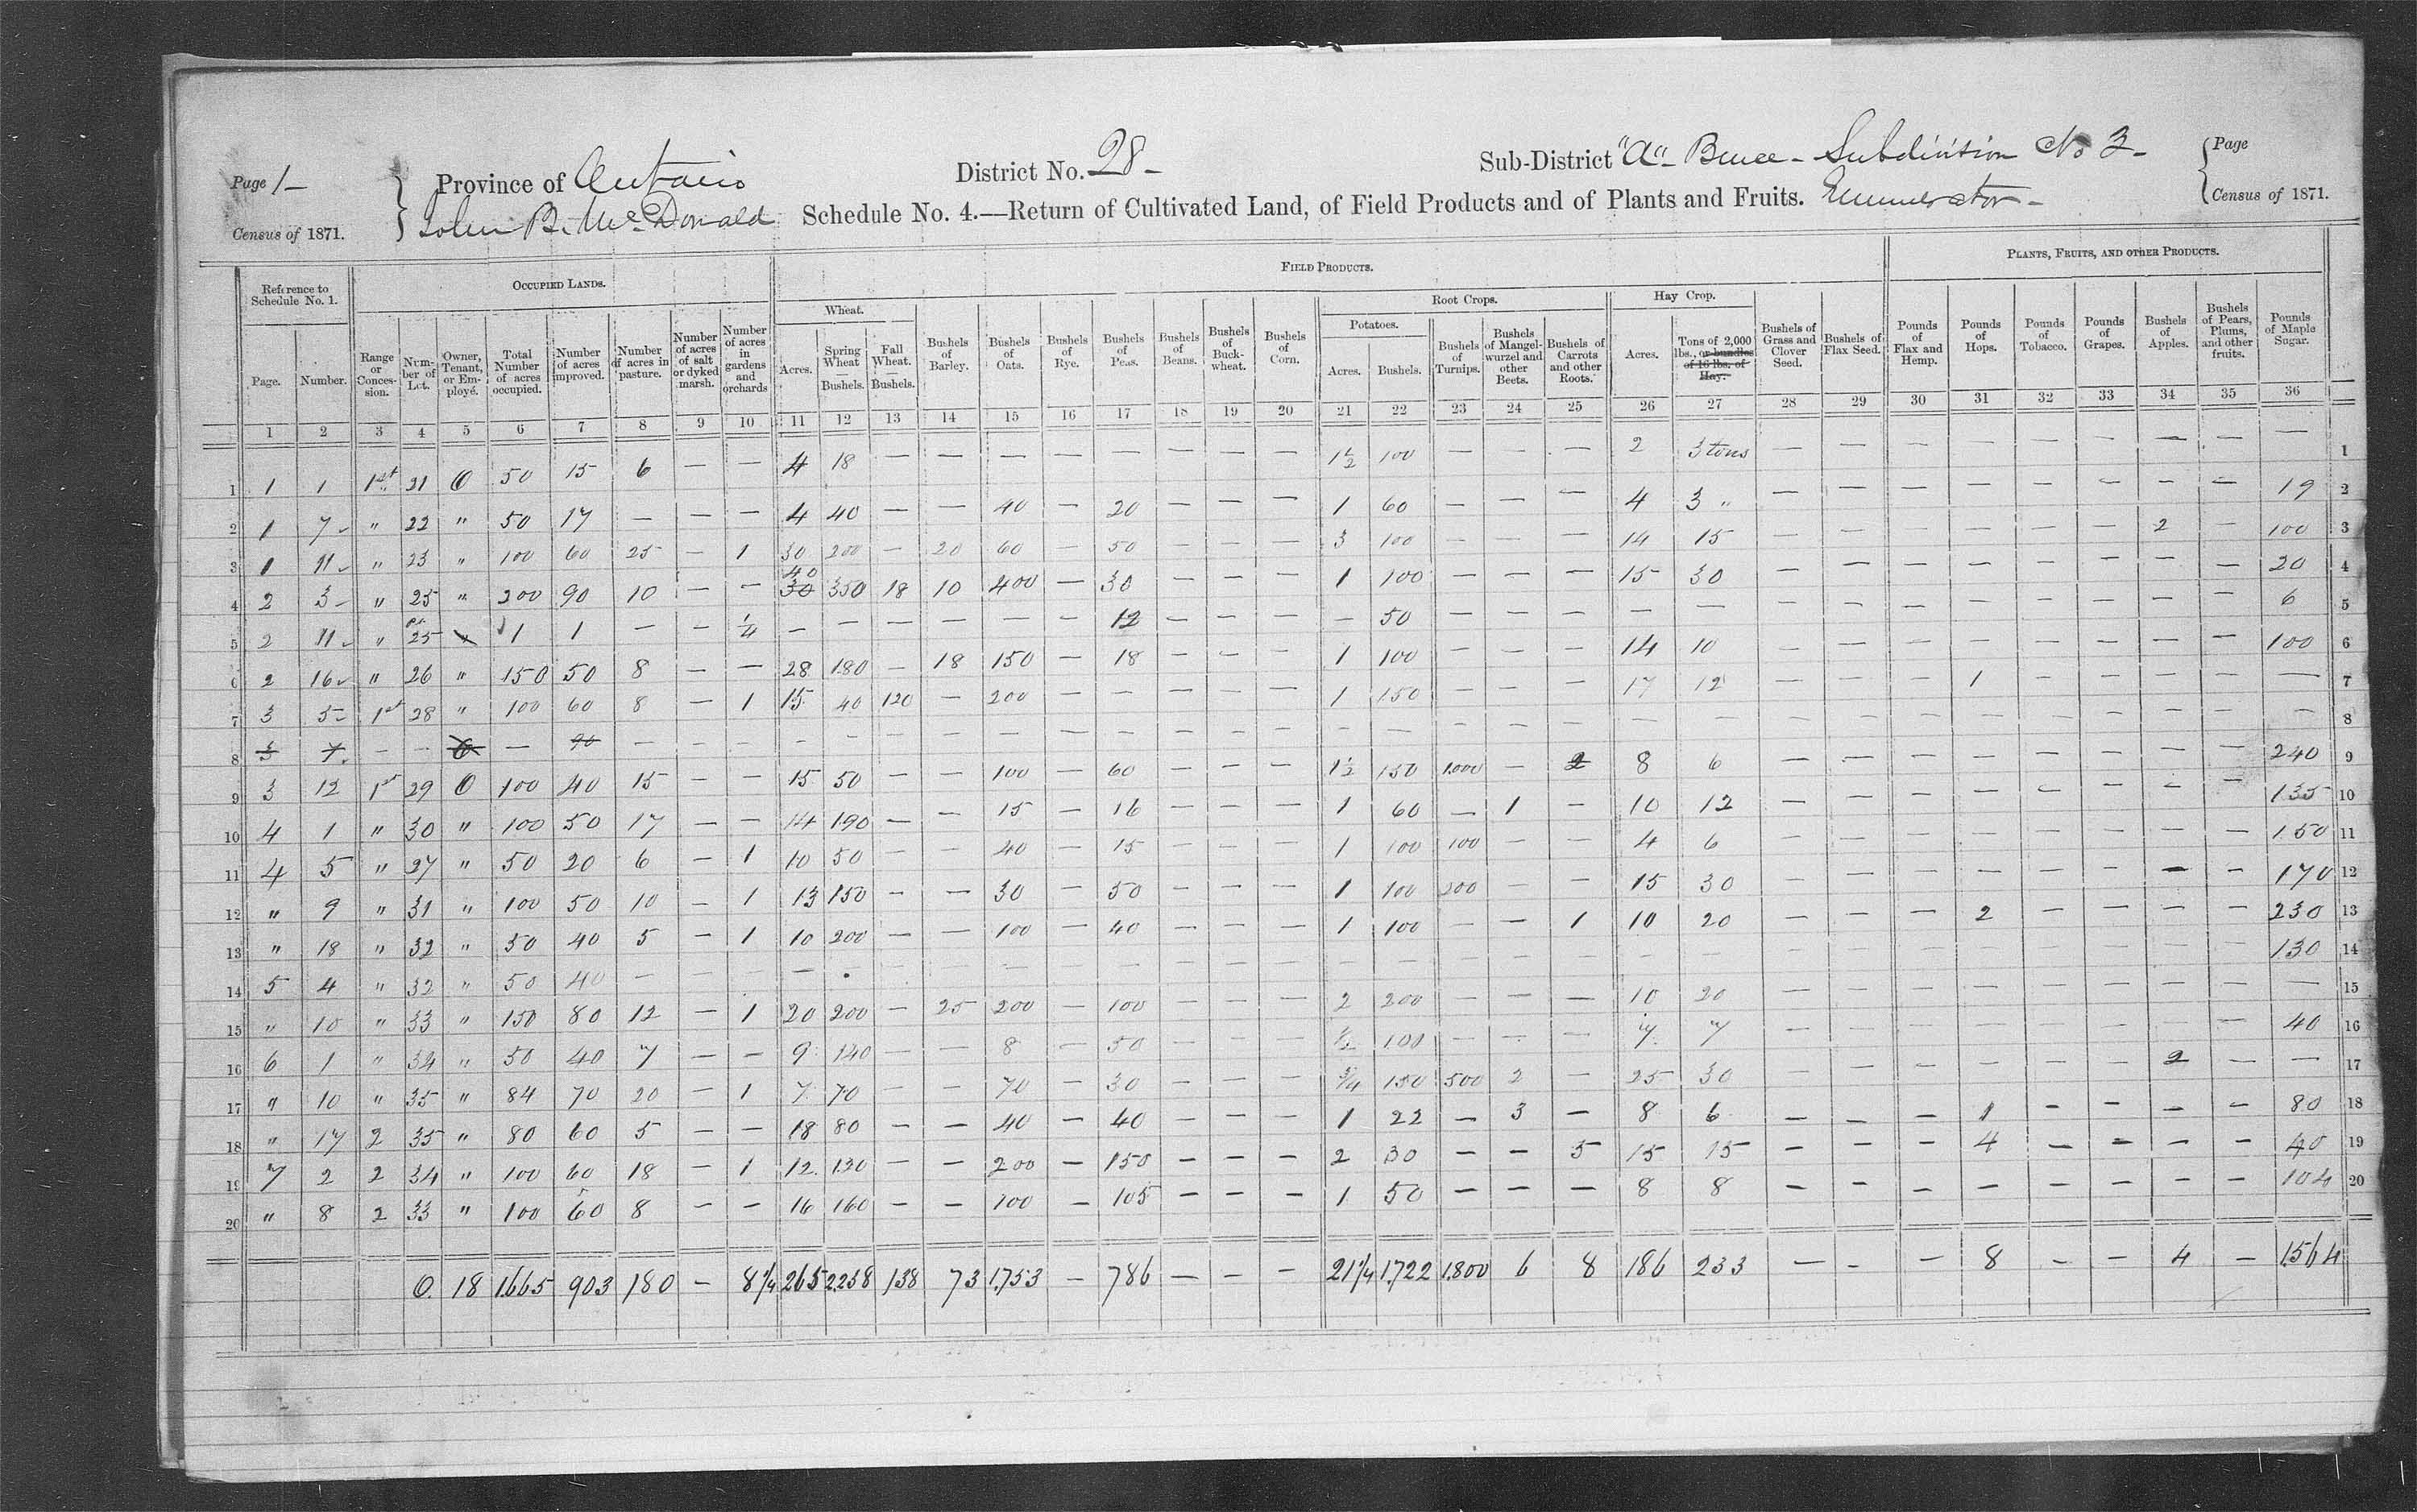 Page 1-
Census of 1871.
Province of Ontario
District No. 28-
Sub-District "A"- Bruce- Subdivision No 3-
Page
Census of 1871.
John B. McDonald
Schedule No. 4.—Return of Cultivated Land, of Field Products and of Plants and Fruits. Enumerator-
Reference to Schedule No. 1.
OCCUPIED LANDS.
FIELD PRODUCTS.
PLANTS, FRUITS, AND OTHER PRODUCTS.
Wheat.
Root Crops.
Potatoes.
Hay Crop.
Page.
Number.
Range or Conces-sion.
Num-ber of Lot.
Owner, Tenant, or Em-ployé.
Total Number of acres occupied.
Number of acres improved.
Number of acres in pasture.
Number of acres of salt or dyked marsh.
Number of acres in gardens and orchards
Acres.
Spring Wheat — Bushels.
Fall Wheat. — Bushels.
Bushels of Barley.
Bushels of Oats.
Bushels of Rye.
Bushels of Peas.
Bushels of Beans.
Bushels of Buck-wheat.
Bushels of Corn.
Acres.
Bushels.
Bushels of Turnips.
Bushels of Mangel-wurzel and other Beets.
Bushels of Carrots and other Roots.
Acres.
Tons of 2,000 lbs., or bundles of 16 lbs. of Hay.
Bushels of Grass and Clover Seed.
Bushels of Flax Seed.
Pounds of Flax and Hemp.
Pounds of Hops.
Pounds of Tobacco.
Pounds of Grapes.
Bushels of Apples.
Bushels of Pears, Plums, and other fruits.
Pounds of Maple Sugar.
1 2 3 4 5 6 7 8 9 10 11 12 13 14 15 16 17 18 19 20 21 22 23 24 25 26 27 28 29 30 31 32 33 34 35 36
1 1 1 1st 21 O 50 15 6 — — 4 18 — — — — — — — — 1½ 100 — — — 2 3 tons — — — — — — — — — 1
2 1 7 " 22 " 50 17 — — — 4 40 — — 40 — 20 — — — 1 60 — — — 4 3 " — — — — — — — — 19 2
3 1 11 " 23 " 100 60 25 — 1 30 200 — 20 60 — 50 — — — 3 100 — — — 14 15 — — — — — — 2 — 100 3
4 2 3 " 25 " 200 90 10 — — 30 40 350 18 10 400 — 30 — — — 1 100 — — — 15 30 — — — — — — — — 20 4
5 2 11 " pt 25 " 1 1 — — ¼ — — — — — — 12 — — — — 50 — — — — — — — — — — — — — 6 5
6 2 16 " 26 " 150 50 8 — — 28 180 — 18 150 — 18 — — — 1 100 — — — 14 10 — — — — — — — — 100 6
7 3 5 1st 28 " 100 60 8 — 1 15 40 120 — 200 — — — — — 1 150 — — — 17 12 — — — 1 — — — — — 7
8 3 7 — — O — 90 — — — — — — — — — — — — — — — — — — — — — — — — — — — — — 8
9 3 12 1st 29 O 100 40 15 — — 15 50 — — 100 — 60 — — — 1½ 150 1000 — 2 8 6 — — — — — — — — 240 9
10 4 1 " 30 " 100 50 17 — — 14 190 — — 15 — 16 — — — 1 60 — 1 — 10 12 — — — — — — — — 135 10
11 4 5 " 27 " 50 20 6 — 1 10 50 — — 40 — 15 — — — 1 100 100 — — 4 6 — — — — — — — — 150 11
12 " 9 " 31 " 100 50 10 — 1 13 150 — — 30 — 50 — — — 1 100 200 — — 15 30 — — — — — — — — 170 12
13 " 18 " 32 " 50 40 5 — 1 10 200 — — 100 — 40 — — — 1 100 — — 1 10 20 — — — 2 — — — — 230 13
14 5 4 " 32 " 50 40 — — — — — — — — — — — — — — — — — — — — — — — — — — — — 130 14
15 " 10 " 33 " 150 80 12 — 1 20 200 — 25 200 — 100 — — — 2 200 — — — 10 20 — — — — — — — — — 15
16 6 1 " 34 " 50 40 7 — — 9 140 — — 8 — 50 — — — ½ 100 — — — 7 7 — — — — — — — — 40 16
17 " 10 " 35 " 84 70 20 — 1 7 70 — — 70 — 30 — — — ¾ 150 500 2 — 25 30 — — — — — — 2 — — 17
18 " 17 2 35 " 80 60 5 — — 18 80 — — 40 — 40 — — — 1 22 — 3 — 8 6 — — — 1 — — — — 80 18
19 7 2 2 34 " 100 60 18 — 1 12 120 — — 200 — 150 — — — 2 30 — — 5 15 15 — — — 4 — — — — 40 19
20 " 8 2 33 " 100 60 8 — — 16 160 — — 100 — 105 — — — 1 50 — — — 8 8 — — — — — — — — 104 20
O. 18 1665 903 180 — 8¼ 265 2258 138 73 1,753 — 786 — — — 21¼ 1,722 1,800 6 8 186 233 — — — 8 — — 4 — 1564